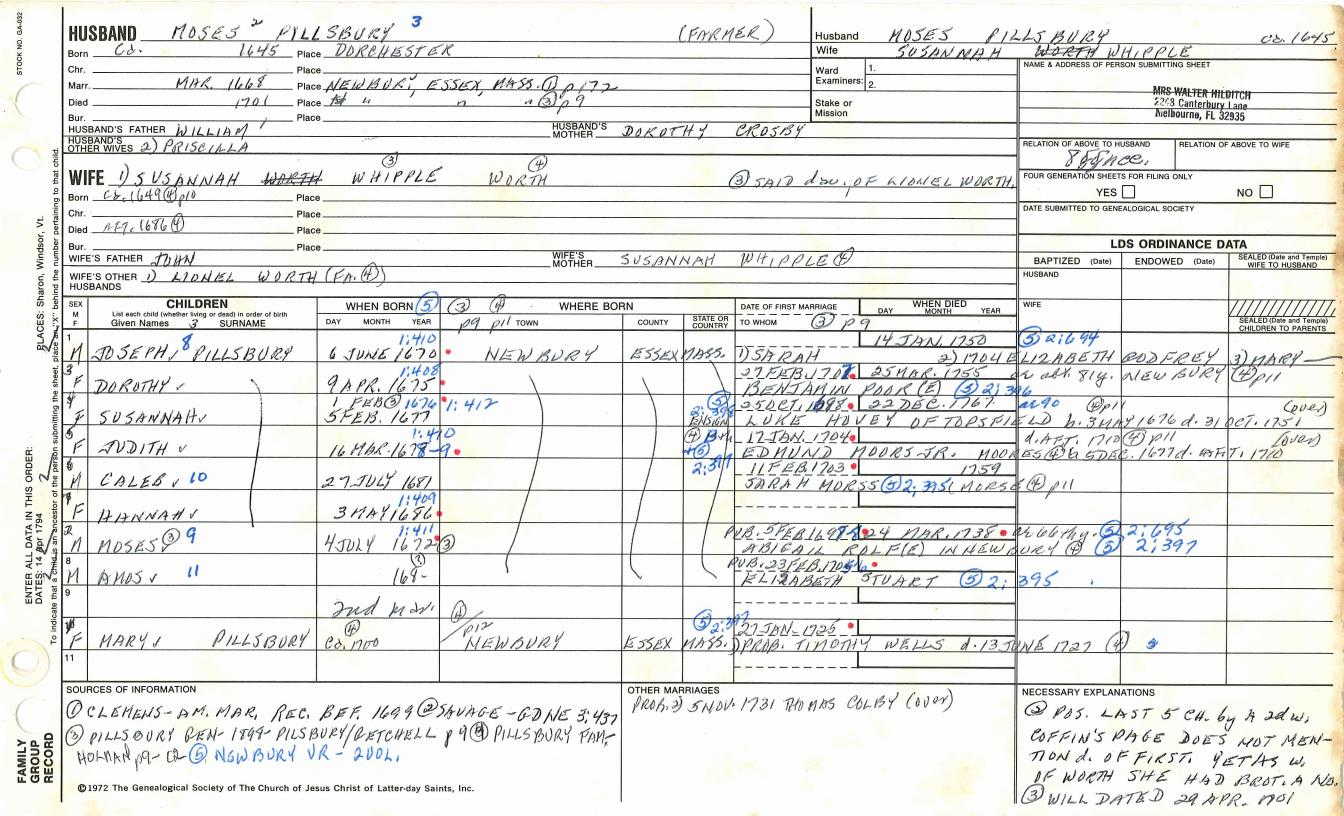 STOCK NO. GA-032
HUSBAND MOSES 2 PILLSBURY 3 (FARMER)
Born Ca. 1645 Place DORCHESTER
Chr. Place
Marr. MAR. 1668 Place NEWBURY, ESSEX, MASS. ① p172
Died 1701 Place " " " ③ p9
Bur. Place
HUSBAND'S FATHER WILLIAM 1 HUSBAND'S MOTHER DOROTHY CROSBY
HUSBAND'S OTHER WIVES 2) PRISCILLA
WIFE 1) SUSANNAH WORTH WHIPPLE ③ WORTH ④ ③ SAID dau. OF LIONEL WORTH.
Born Ca. 1649 ④ p10 Place
Chr. Place
Died AFT. 1686 ④ Place
Bur. Place
WIFE'S FATHER JOHN WIFE'S MOTHER SUSANNAH WHIPPLE ④
WIFE'S OTHER HUSBANDS 1) LIONEL WORTH (FA. ④)
Husband MOSES PILLSBURY ca. 1645
Wife SUSANNAH WORTH WHIPPLE
Ward Examiners: 1.
2.
Stake or Mission
NAME & ADDRESS OF PERSON SUBMITTING SHEET
MRS WALTER HILDITCH
Canterbury Lane
Melbourne, FL 32935
RELATION OF ABOVE TO HUSBAND RELATION OF ABOVE TO WIFE
FOUR GENERATION SHEETS FOR FILING ONLY
YES NO
DATE SUBMITTED TO GENEALOGICAL SOCIETY
LDS ORDINANCE DATA
BAPTIZED (Date) ENDOWED (Date) SEALED (Date and Temple) WIFE TO HUSBAND
HUSBAND
WIFE
SEALED (Date and Temple) CHILDREN TO PARENTS
SEX M F CHILDREN List each child (whether living or dead) in order of birth Given Names 3 SURNAME
WHEN BORN ⑤ DAY MONTH YEAR ③ p9 ④ p11 WHERE BORN TOWN COUNTY STATE OR COUNTRY
DATE OF FIRST MARRIAGE TO WHOM ③ p9 WHEN DIED DAY MONTH YEAR
1 M JOSEPH 8 PILLSBURY 1:410 6 JUNE 1670 NEWBURY ESSEX MASS. 14 JAN. 1750 ⑤ 2:694
1) SARAH 2) 1704 ELIZABETH GODFREY 3) MARY
3 F DOROTHY 1:408 9 APR. 1675 27 FEB. 25 MAR. 1755 or abt. 81y. NEWBURY ④ p11
BENJAMIN POOR (E) ⑤ 2:396
4 F SUSANNAH 1 FEB ③ 1676 1:412 5 FEB. 1677 ⑤ 2:395 25 OCT. 1698 22 DEC. 1767 ae 90 ④ p11 (over)
ENSIGN LUKE HOVEY OF TOPSFIELD b. 3 MAY 1676 d. 31 OCT. 1751
5 F JUDITH 1:410 16 MAR. 1678-9 17 JAN. 1704 d. AFT. 1710 ④ p11 (over)
EDMUND MOORS JR. MOORES ④ b. 5 DEC. 1677 d. AFT. 1710
6 M CALEB 10 27 JULY 1681 2:397 11 FEB 1703 1759
SARAH MORSS ⑤ 2:395 (MORSE ④ p11
7 F HANNAH 1:409 3 MAY 1686
2 M MOSES ③ 9 1:411 4 JULY 1672 ③ PUB. 5 FEB. 24 MAR. 1738 ae 66 thy. ⑤ 2:695
ABIGAIL ROLF(E) IN NEWBURY ④ ⑤ 2:397
8 M AMOS 11 168- PUB. 23 FEB.
ELIZABETH STUART ⑤ 2:395
9
2nd mar. ④ p12
10 F MARY PILLSBURY ca. 1700 ④ NEWBURY ESSEX MASS. ⑤ 2:397 27 JAN. 1725
1) PROB. TIMOTHY WELLS d. 13 JUNE 1727 ④
11
SOURCES OF INFORMATION
① CLEMENS-AM. MAR. REC. BEF. 1699 ② SAVAGE-GDNE 3:437
③ PILLSBURY GEN-1898-PILSBURY/GETCHELL p9 ④ PILLSBURY FAM-
HOLMAN p9-12 ⑤ NEWBURY VR-2VOL.
©1972 The Genealogical Society of The Church of Jesus Christ of Latter-day Saints, Inc.
OTHER MARRIAGES
PROB. 2) 5 NOV. 1731 THOMAS COLBY (over)
NECESSARY EXPLANATIONS
② POS. LAST 5 CH. by A 2d w.
COFFIN'S PAGE DOES NOT MEN-
TION d. OF FIRST. YET AS W.
OF WORTH SHE HAD BROT. A NO.
③ WILL DATED 29 APR. 1701
ENTER ALL DATA IN THIS ORDER:
DATES: 14 Apr 1794
PLACES: Sharon, Windsor, Vt.
To indicate that a child is an ancestor of the person submitting the sheet, place an "X" behind the number pertaining to that child.
FAMILY
GROUP
RECORD